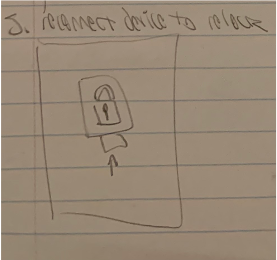 5. reconnect device to relock